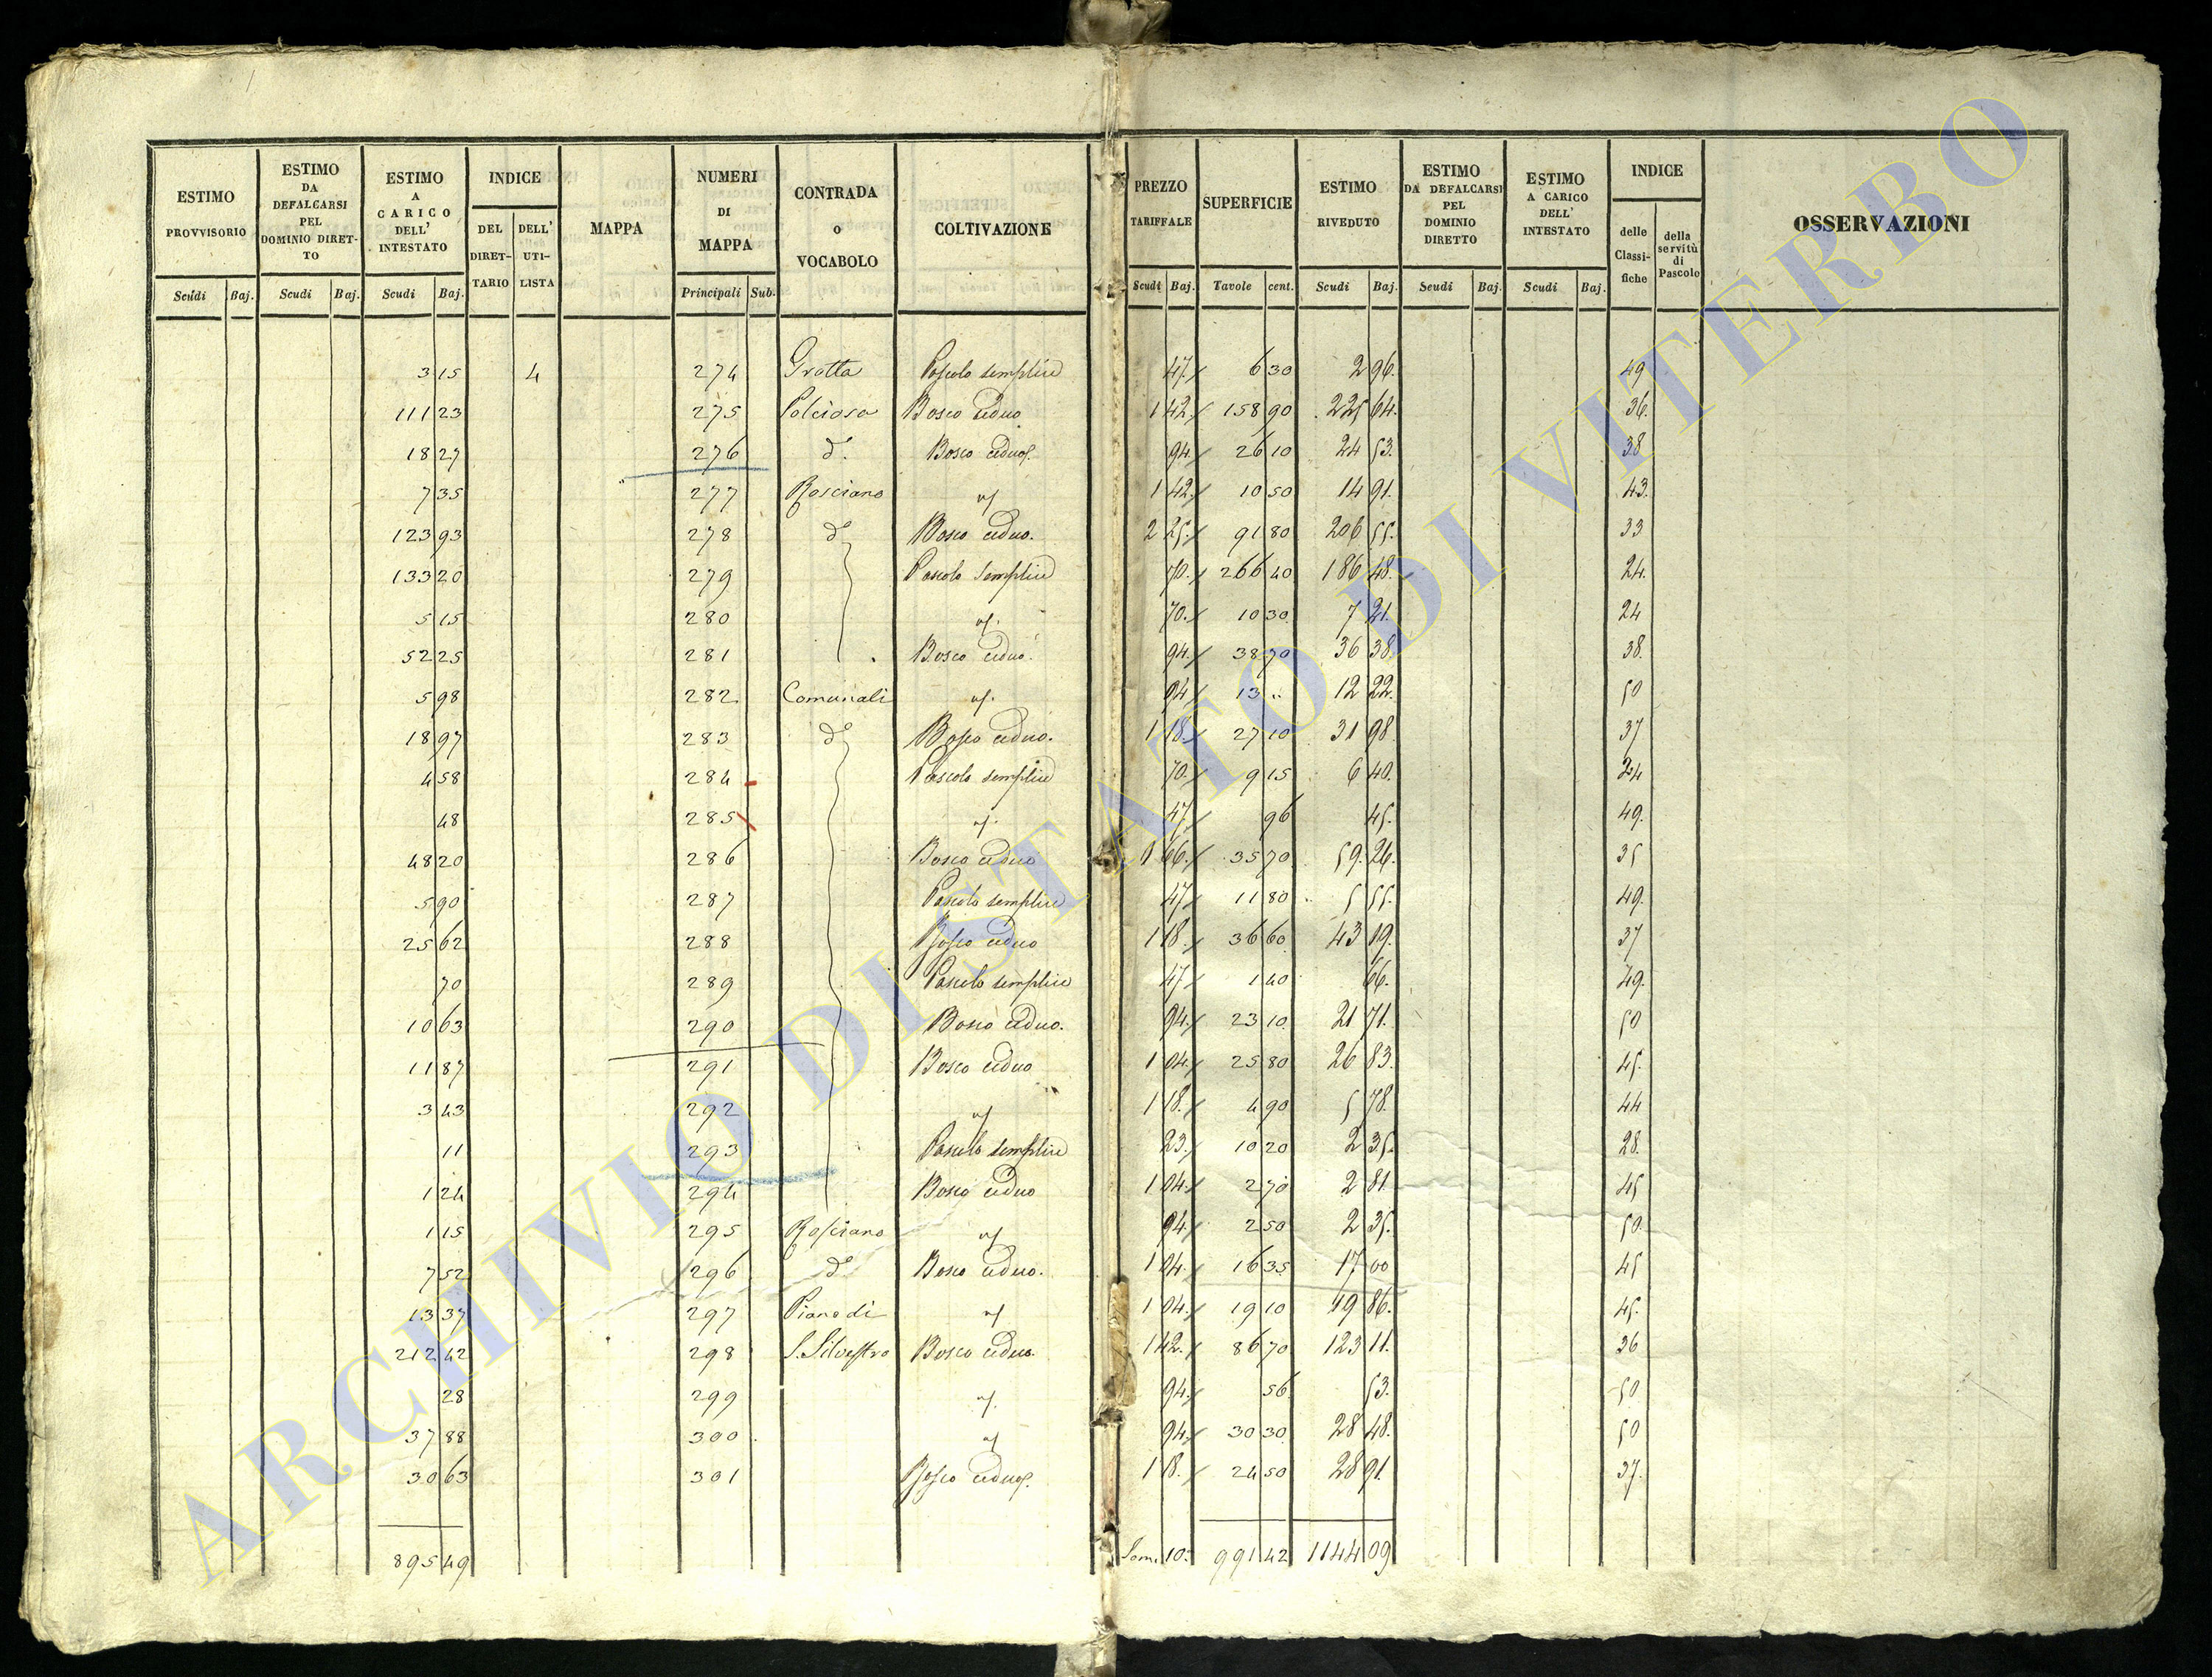 ESTIMO PROVVISORIO Scudi Baj.
ESTIMO DA DEFALCARSI PEL DOMINIO DIRET- TO Scudi Baj.
ESTIMO A CARICO DELL' INTESTATO Scudi Baj.
INDICE DEL DIRET- TARIO DELL' UTI- LISTA
MAPPA
NUMERI DI MAPPA Principali Sub.
CONTRADA o VOCABOLO
COLTIVAZIONE
PREZZO TARIFFALE Scudi Baj.
SUPERFICIE Tavole cent.
ESTIMO RIVEDUTO Scudi Baj.
ESTIMO DA DEFALCARSI PEL DOMINIO DIRETTO Scudi Baj.
ESTIMO A CARICO DELL' INTESTATO Scudi Baj.
INDICE delle Classi- fiche della servitù di Pascolo
OSSERVAZIONI
3 15 4 274 Grotta Pascolo semplice 47. 6 30 2 96. 49
111 23 275 Polciosa Bosco ceduo 1 42. 158 90 225 64. 36.
18 27 276 d.º Bosco ceduo 94. 26 10 24 53. 38
7 35 277 Rosciano 1 42. 10 50 14 91. 43.
123 93 278 dº Bosco ceduo. 2 25. 91 80 206 55. 33
133 20 279 Pascolo semplice 70. 266 40 186 48. 24.
5 15 280 70. 10 30 7 21. 24
52 25 281 Bosco ceduo. 94. 38 70 36 38. 38.
5 98 282 Comunali 94. 13 .. 12 22. 50
18 97 283 dº Bosco ceduo. 1 18. 27 10 31 98 37
4 58 284 Pascolo semplice 70. 9 15 6 40. 24
48 285 47. 96 45. 49.
48 20 286 Bosco ceduo 1 66. 35 70 59. 26. 35
5 90 287 Pascolo semplice 47. 11 80 5 55. 49.
25 62 288 Bosco ceduo 1 18. 36 60 43 19. 37
70 289 Pascolo semplice 47. 1 40 66. 49.
10 63 290 Bosco ceduo. 94. 23 10 21 71. 50
11 87 291 Bosco ceduo 1 04. 25 80 26 83. 45.
3 43 292 1 18. 4 90 5 78. 44
11 293 Pascolo semplice 23. 10 20 2 35. 28.
1 24 294 Bosco ceduo 1 04. 2 70 2 81. 45
1 15 295 Rosciano 94. 2 50 2 35. 50.
7 52 296 dº Bosco ceduo. 1 04. 16 35 17 00 45
13 37 297 Piano di 1 04. 19 10 19 86. 45.
212 42 298 S. Silvestro Bosco ceduo. 1 42. 86 70 123 11. 36
28 299 94. 56 53. 50
37 88 300 94. 30 30 28 48. 50
30 63 301 Bosco ceduo 1 18. 24 50 28 91. 37.
895 49 Som. 10. 991 42 1144 09
ARCHIVIO DI STATO DI VITERBO